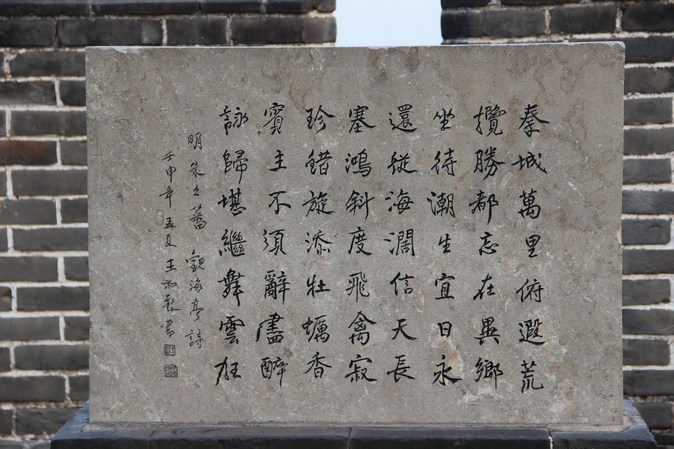 秦城萬里俯遐荒
攬勝都忘在異鄉
坐待潮生宜日永
還從海濶信天長
塞鴻斜度飛禽寂
珍錯旋添牡蠣香
賓主不須辭盡醉
詠歸堪繼舞雲狂
明朱之蕃觀海亭詩
壬申年五夏王書